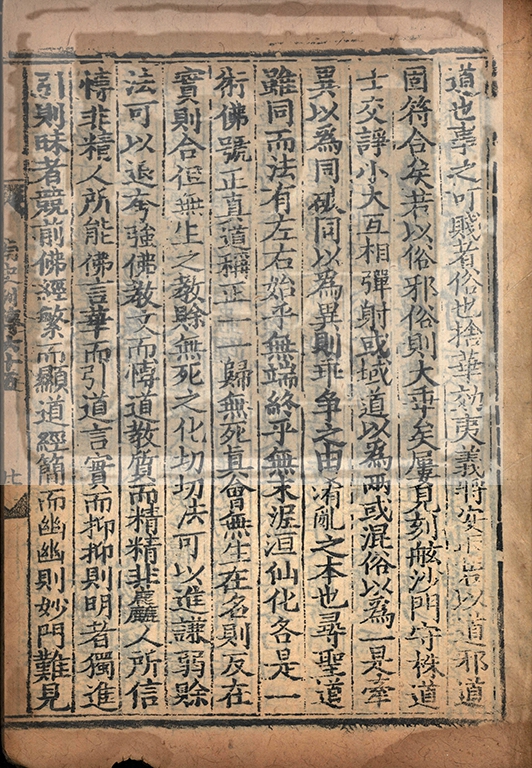 道也事之可賤者俗也捨華効夷義將安取若以道邪道
固符合矣若以俗邪俗則大乖矣屢見刻舷沙門守株道
士交諍小大互相彈射或域道以為兩或混俗以為一是牽
異以為同破同以為異則乖争之由淆亂之本也尋聖道
雖同而法有左右始乎無端終乎無末泥洹仙化各是一
術佛號正真道稱正一一歸無死真會無生在名則反在
實則合但無生之教賒無死之化切切法可以進謙弱賒
法可以退夸強佛教文而博道教質而精精非麤人所信
博非精人所能佛言華而引道言實而抑抑則明者獨進
引則昧者競前佛經繁而顯道經簡而幽幽則妙門難見